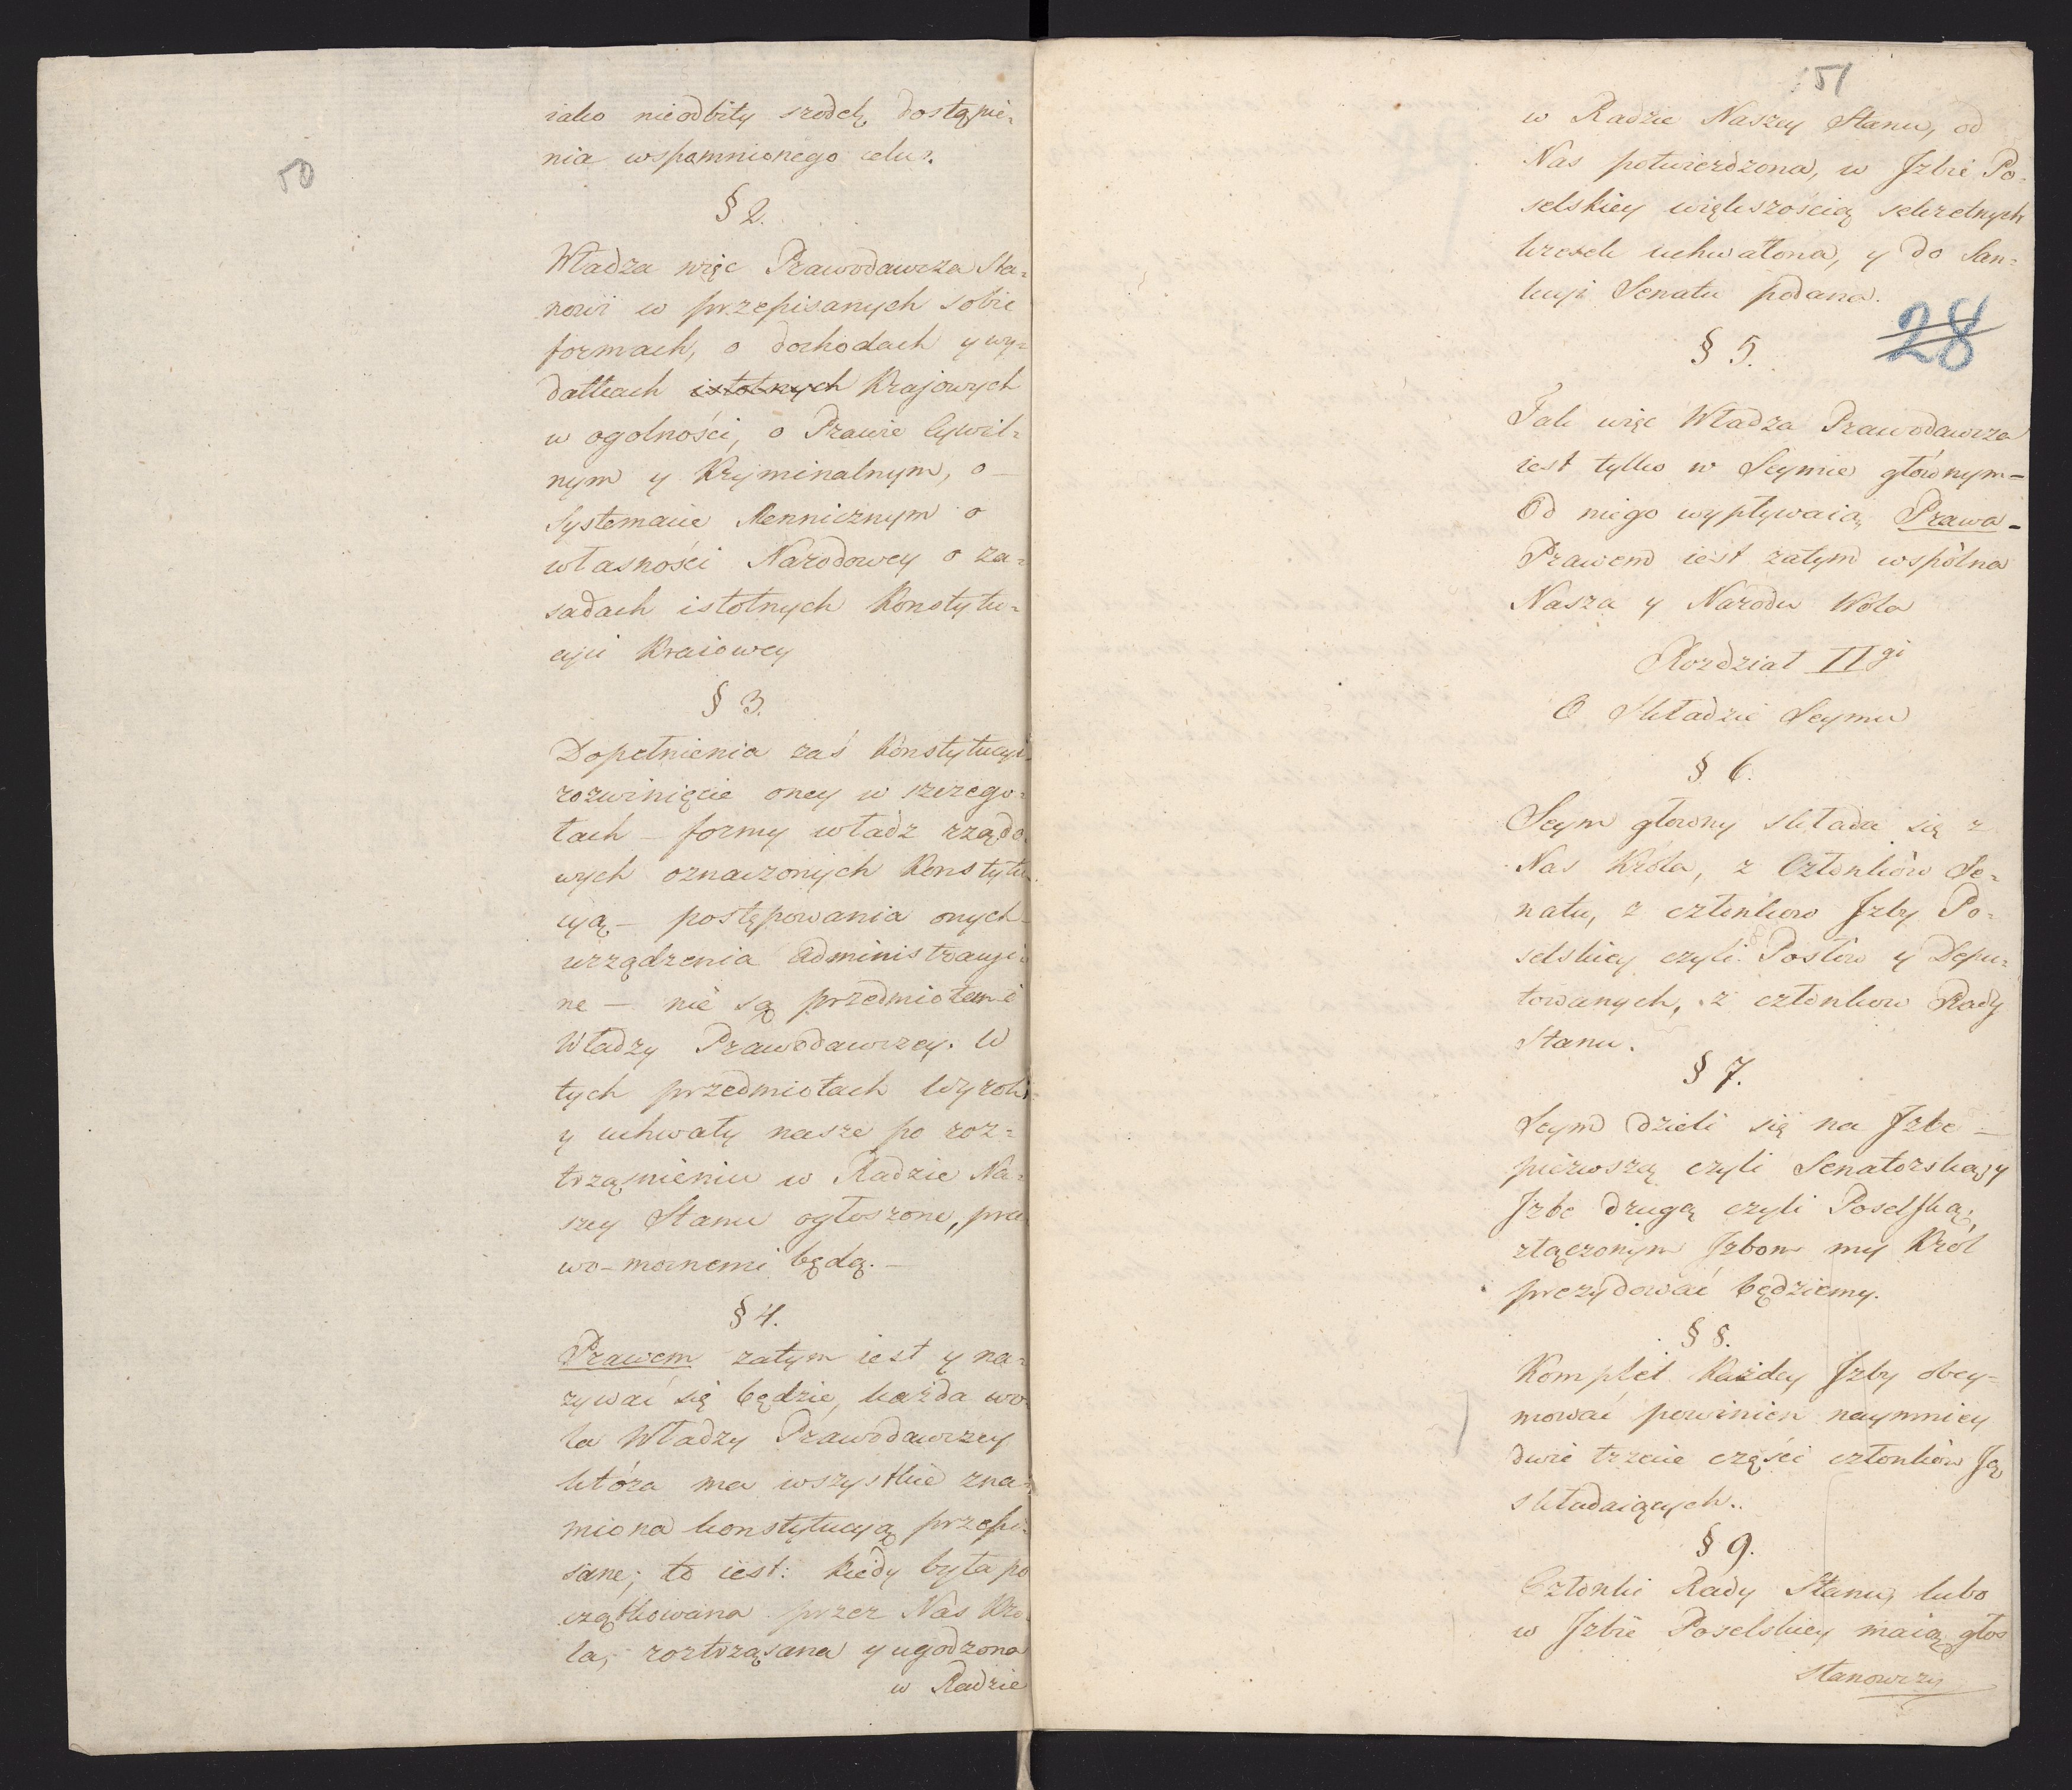 50
iako nieodbity srodek dostąpie„
nia wspomnionego celu.
§ 2.
Władza więc Prawodawcza sta=
nowi w przepisanych sobie
formach, o dochodach y wy=
datkach istotnych Krajowych
w ogolności, o Prawie Cywil=
nym y Kryminalnym, o
Systemacie Mennicznym o
własności Narodowey o za=
sadach istotnych Konstytu=
cyi Kraiowey
§ 3.
Dopełnienia zaś Konstytucyi
rozwinięcie oney w szczego=
łach – formy władz rządo
wych oznaczonych Konstytu
cyą – postępowania onych
urządzenia administracyi
ne — nie są przedmiotem
Władzy Prawodawczey. W
tych przedmiotach Wyroki
y uchwały nasze po roz=
trząśnieniu w Radzie Na=
szey Stanu ogłoszone, pra
wo-mocnemi będą. –
§ 4.
Prawem zatym iest y na=
zywać się będzie, każda wo
la Władzy Prawodawczey
która ma wszystkie zna=
miona konstytucyą przepi=
sane; to iest: kiedy była po
czątkowana przez Nas Kró
la, roztrząsana y ugodzona
w Radzie
51
w Radzie Naszey Stanu, od
Nas potwierdzona, w Jzbie Po=
selskiey większością sekretnych
kresek uchwalona, y do San=
kcyi Senatu podana.
28
§ 5.
Tak więc Władza Prawodawcza
iest tylko w Seymie głównym –
Od niego wypływaią Prawa –
Prawem iest zatym wspólna
Nasza y Narodu Wola
Rozdział IIgi
O Składzie Seymu
§ 6.
Seym głowny składa się z
Nas Króla, z Członków Se=
natu, z członkow Jzby Po=
selskiey czyli Posłów y Depu=
towanych, z członkow Rady
Stanu.
§ 7.
Seym dzieli się na Jzbe –
pierwszą czyli Senatorską y
Jzbe drugą czyli Poselską,
złączonym Jzbom my Król
prezydować będziemy.
§ 8.
Komplet Każdey Jzby obey=
mować powinien naymniey
dwie trzecie części członków Ją
składaiących..
§ 9.
Członki Rady Stanu, lubo
w Jzbie Poselskiey maią głos
stanowczy